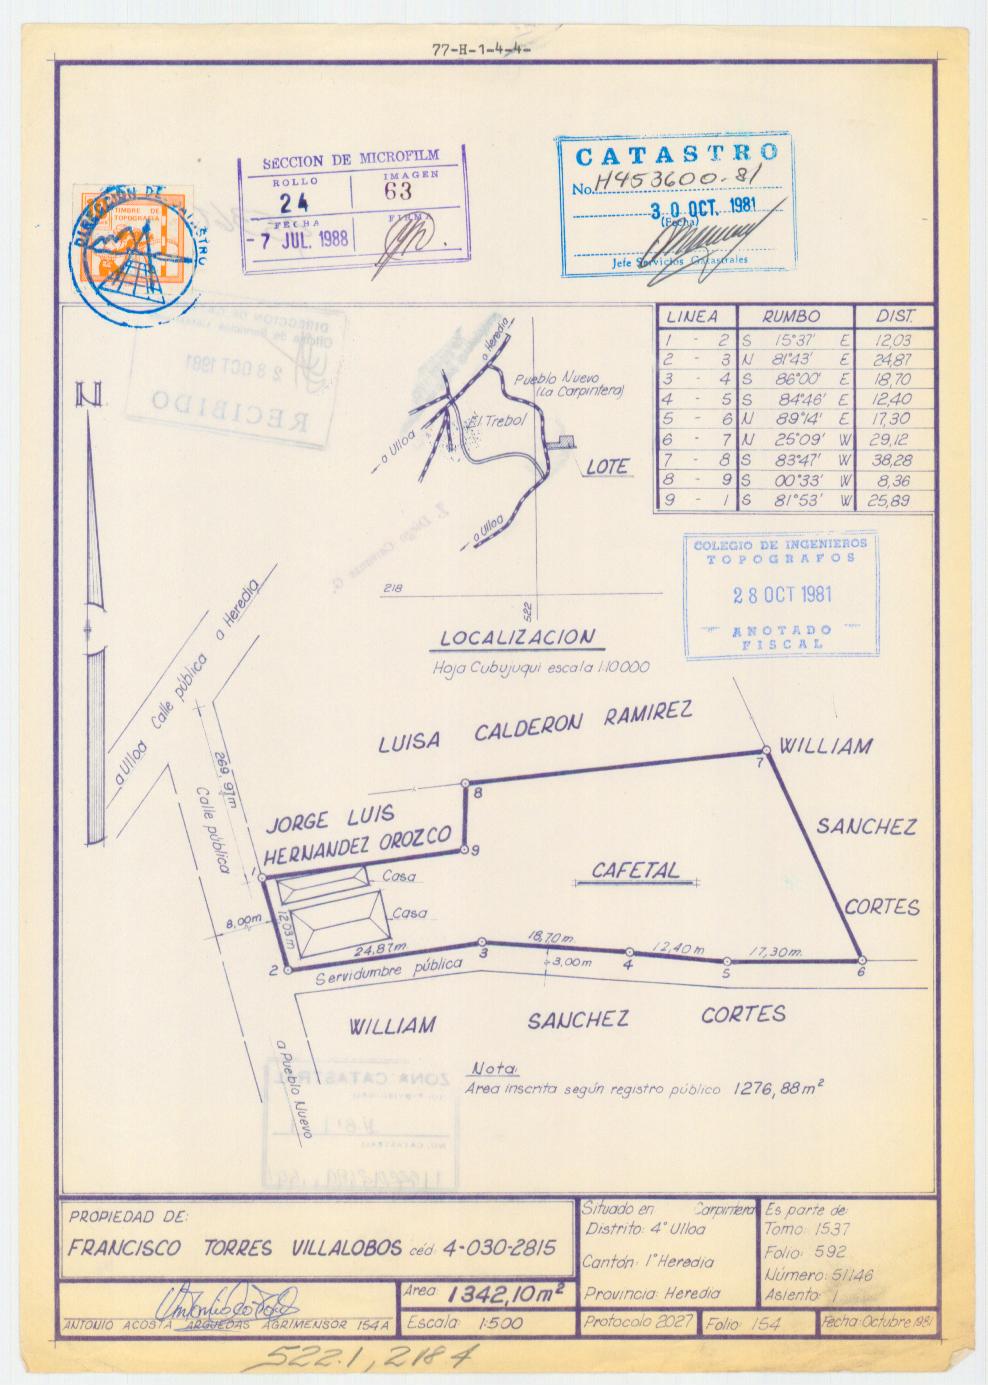 77-H-1-4-4-
DIRECCION DE CATASTRO
TIMBRE DE
TOPOGRAFIA
SECCION DE MICROFILM
ROLLO IMAGEN
24 63
FECHA FIRMA
- 7 JUL. 1988
CATASTRO
No. H453600-81
30 OCT. 1981
(Fecha)
Jefe Servicios Catastrales
LINEA RUMBO DIST.
1 - 2 S 15°37' E 12,03
2 - 3 N 81°43' E 24,87
3 - 4 S 86°00' E 18,70
4 - 5 S 84°46' E 12,40
5 - 6 N 89°14' E 17,30
6 - 7 N 25°09' W 29,12
7 - 8 S 83°47' W 38,28
8 - 9 S 00°33' W 8,36
9 - 1 S 81°53' W 25,89
RECIBIDO
28 OCT 1981
N
a Heredia
Pueblo Nuevo
(La Carpintera)
El Trebol
a Ulloa
LOTE
a Ulloa
218
522
LOCALIZACION
Hoja Cubujuqui escala 1:10000
COLEGIO DE INGENIEROS
TOPOGRAFOS
28 OCT 1981
ANOTADO
FISCAL
a Ulloa Calle pública a Heredia
269,97m
Calle pública
LUISA CALDERON RAMIREZ
WILLIAM
SANCHEZ
CORTES
JORGE LUIS
HERNANDEZ OROZCO
CAFETAL
Casa
Casa
8,00m
12,03m
24,87m.
18,70m.
12,40m
17,30m.
3,00m
1
2
3
4
5
6
7
8
9
Servidumbre pública
WILLIAM SANCHEZ CORTES
a Pueblo Nuevo
ZONA CATASTRAL
Nota:
Area inscrita según registro público 1276,88m²
PROPIEDAD DE:
FRANCISCO TORRES VILLALOBOS céd: 4-030-2815
Situado en Carpintera
Distrito: 4° Ulloa
Cantón: 1° Heredia
Provincia: Heredia
Es parte de:
Tomo: 1537
Folio: 592
Número: 51146
Asiento: 1
ANTONIO ACOSTA ARGUEDAS AGRIMENSOR 154A
Area: 1342,10m²
Escala: 1:500
Protocolo 2027
Folio 154
Fecha: Octubre 1981
522.1, 218.4